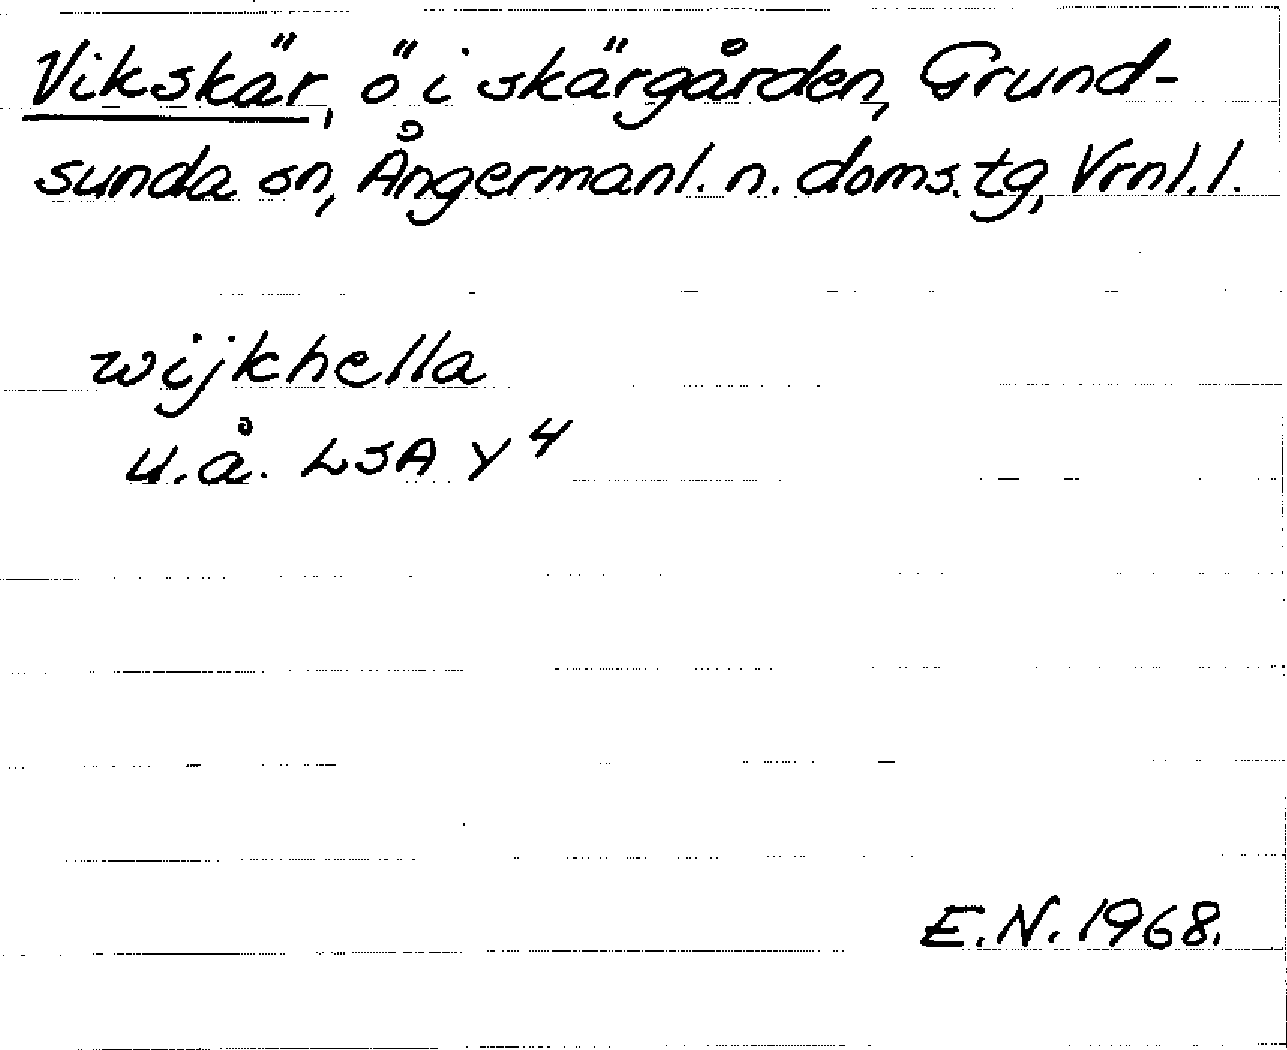 Vikskär, ö i skärgården, Grund-
sunda sn, Ångermanl. n. doms.tg, Vrnl.l.
wijkhella
u.å. LSA Y 4
E.N. 1968.